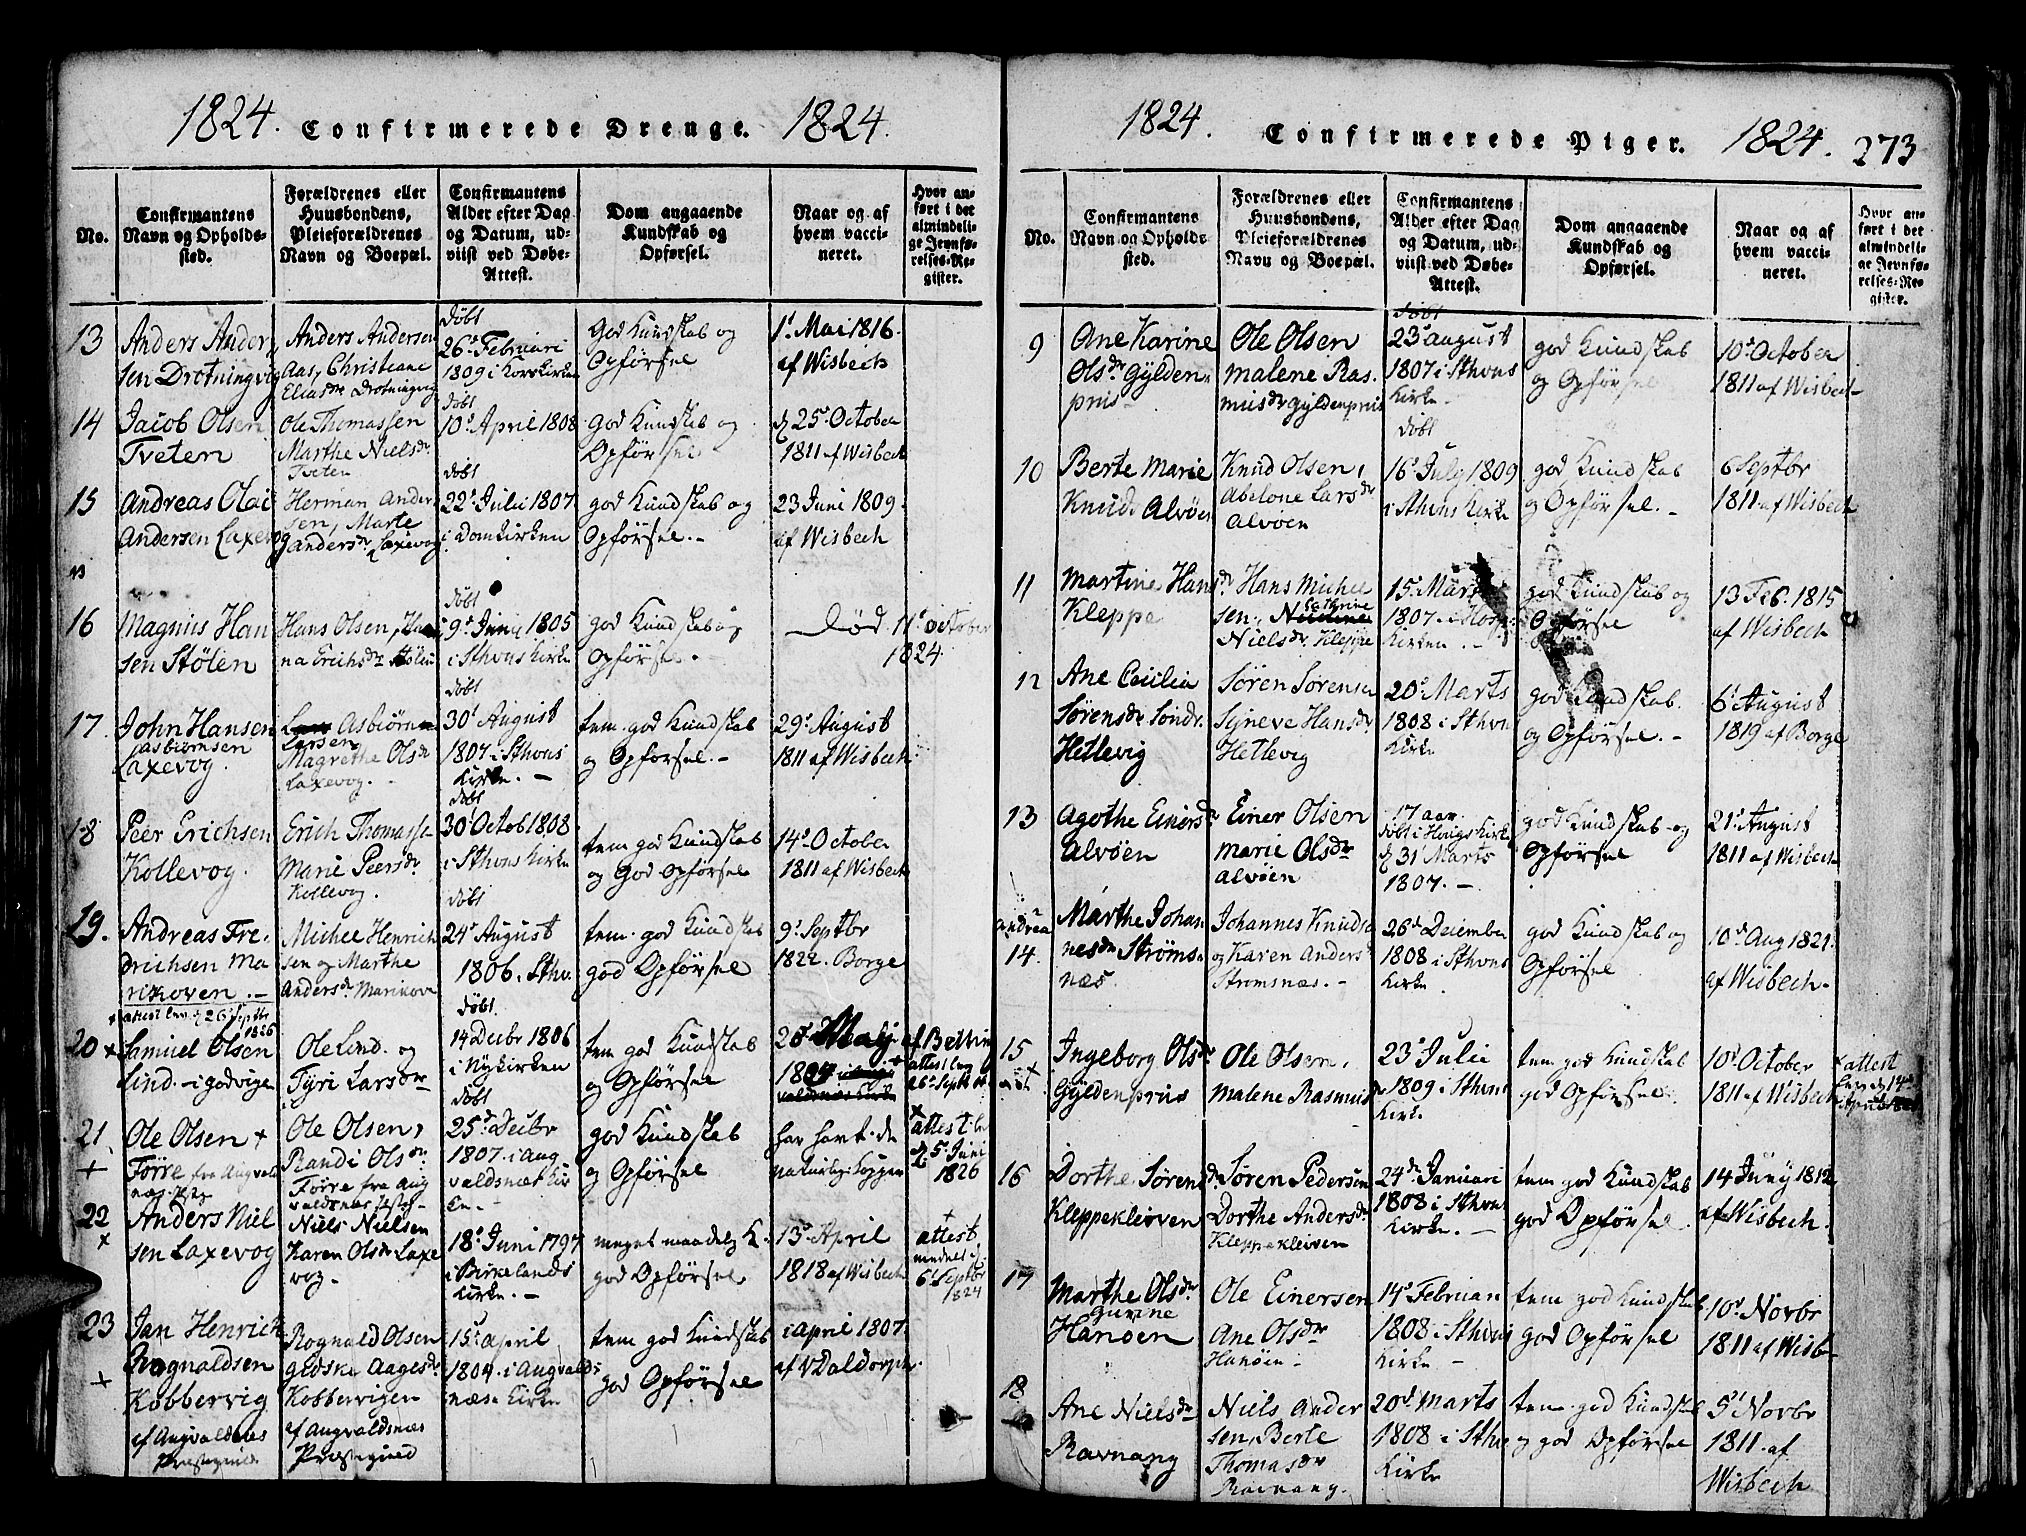 1824. Confirmerede Drenge. 1824.
No.
Confirmantens
Navn og Opholds-
sted.
Forældrenes eller
Huusbondens,
Pleieforældrenes
Navn og Boepæl.
Confirmantens
Alder efter Dag
og Datum, ud-
viist ved Døbe-
Attest.
Dom angaaende
Kundskab og
Opførsel.
Naar og af
hvem vacci-
neret.
Hvor an-
ført i det
almindeli-
ge Jevnfø-
relses-Re-
gister.
13
Anders Ander
sen Drotningvig
Anders Andersen
Aas, Christeane
Eliasdr Drotningvig
døbt
26d Februari
1809 i Korskirken
God Kundskab og
Opførsel
1t Mai 1816.
af Wisbech
14
Jacob Olsen
Tveten
Ole Thomassen
Marthe Nielsdr
Tveten
døbt
10d April 1808
God Kundskab og
Opførsel
d 25d October
1811 af Wisbech
15
Andreas Olai
Andersen Laxevog
Herman Ander
sen, Marte
Andersdr Laxevog
døbt
22d Julii 1807
i Domkirken
god Kundskab og
Opførsel.-
23 Juni 1809.
af Wisbech
16
Magnus Han
sen Stølen
Hans Olsen,
na Erichsdr Stølen
døbt
9d Juni 1805
i Sthvns Kirke
god Kundskab og
Opførsel.
Død 11d october
1824
17.
John Hansen
Asbiørnsen
Laxevog.
Asbiørn
Larsen
Magrethe Olsdr
Laxevog.
døbt
30t August
1807 i Sthvns
Kirke.-
tem. god Kundskab
og Opførsel.-
29d August
1811 af Wisbech
18
Peer Erichsen
Kollevog.
Erich Thomasse
Marie Peersdr
Kollevog.
døbt
30t Octob 1808
i Sthvns Kirke
tem god Kundskab
og God Opførsel
14d October
1811 af Wisbech
19.
Andreas Fre.
drichsen Ma
rikoven.-
Michel Henrich
sen og Marthe
Andersdr Marikove
døbt
24d August
1806. Sthv.
tem. god Kundskab
god Opførsel
9d Septbr
1822. Borge
attest lev. d 26 Septbr
1826
20 x
Samuel Olsen
Lind.- i godvigen
Ole Lind. og
Tyri Larsdr
døbt
14 Decbr 1806
i Nykirken
tem god Kundskab
og Opførsel
Maij
21
+
Ole Olsen +
Førre fra Augvalds
Ole Olsen,
Randi Olsdr
Førre fra Aug
døbt
25d Decbr
1807. i Aug
valdsnæs Kir
ke.-
god Kundskab
og Opførsel
har havt de
naturlige Kopper
attest
d 5t Juni
1826
22
x
Anders Niel
sen Laxevog
Niels Nielsen
Karen Olsdr Laxe
vog.-
18d Juni 1797
i Birkelands
Kirke.-
meget maadelig K.
god Opførsel
13d April
1818 af Wisbech
+
attest
6t Septbr
1824
23
+
Jan Henrich
Rognaldsen
Kobbervig
af Augvaldsnes
Prestegield
Rognald Olsen
Giedske Aagesdr
Kobbervigen
af Augvaldsnæs
Prestegield
15d April
1804. i Augvalds
næss Kirke
tem god Kundskab
god Opførsel
i April 1807.
af v Daldorph.
1824. Confirmerede Piger. 1824. 273
No.
Confirmantens
Navn og Opholds-
sted.
Forældrenes eller
Huusbondens,
Pleieforældrenes
Navn og Boepæl.
Confirmantens
Alder efter Dag
og Datum, ud-
viist ved Døbe-
Attest.
Dom angaaende
Kundskab og
Opførsel.
Naar og af
hvem vacci-
neret.
Hvor an-
ført i det
almindeli-
ge Jevnfø-
relses-Re-
gister.
9
Ane Karine
Olsdr Gylden
priis
Ole Olsen
Malene Ras.
musdr Gyldenpriis
døbt
23d August
1807 i Sthvns
Kirke
god Kundskab
og Opførsel
10d October
1811 af Wisbech
10
Berte Marie
Knuds Alvøen
Knud Olsen,
Abelone Larsdr
Alvøen
døbt
16d July 1809
i Sthvns Kirke
god Kundskab
og Opførsel.-
6 Septbr
1811 af Wisbech
11
Martine Hansdr
Kleppe
Hans Michel
sen, Cathrine
Nielsdr. Kleppe
15d Marts
1807 i Hosp:
Kirken.-
god Kundskab og
Opførsel
13 Feb. 1815
af Wisbech
12
Ane Cicilia
Sørensdr Søndr.
Hetlevig
Søren Sørensen
Synneve Hansdr
Hetlevig
20d Marts
1808 i Sthvns
Kirke
god Kundskab.
og Opførsel.-
6t August
1819 af Borge
13
Agothe Einersdr
Alvøen
Einer Olsen
Marie Olsdr
Alvøen
17 aar.
døbt i Hougs Kirke
d 31t Marts
1807.-
god Kundskab og
Opførsel
21d August
1811 af Wisbech
Andrea
14.
Marthe Johan
nesdr Strøms
næs.
Johannes Knudse
og Karen Andersdr
Strømsnæs.-
26d December
1808 i Sthvns
Kirke.
god Kundskab og
Opførsel
10d Aug 1821.
af Wisbech.
15
Ingeborg Olsdr
Gyldenpriis
Ole Olsen,
Malene Rasmus
23d Julii
1809 i Sthvns
Kirke
tem god Kundskab
god Opførsel.
10d October
1811 af Wisbech
x attest
16
Dorthe Sørensdr
Kleppekleiven
Søren Pedersen
Dorthe Andersdr
Kleppekleiven
24d Januari
1808 i Sthvns
Kirke.-
tem god Kundskab
god Opførsel.
14 Juny 1812
af Wisbech.
17
Marthe Olsdr
Gurine
Hanøen
Ole Einersen
Ane Olsdr
Hanøen-
14d Februari
1808 i Sthvns
Kirke-
tem god Kundskab
god Opførsel
10d Novbr
1811 af Wisb
18
Ane Nielsdr
Ravnang
Niels Ander
sen, Berte
Thomasdr
Ravnang.
20d Marts
1808 i Sthv
Kirke
tem. god Kundskab
og god Opførsel
5t Novbr
1811. af
Wisbech